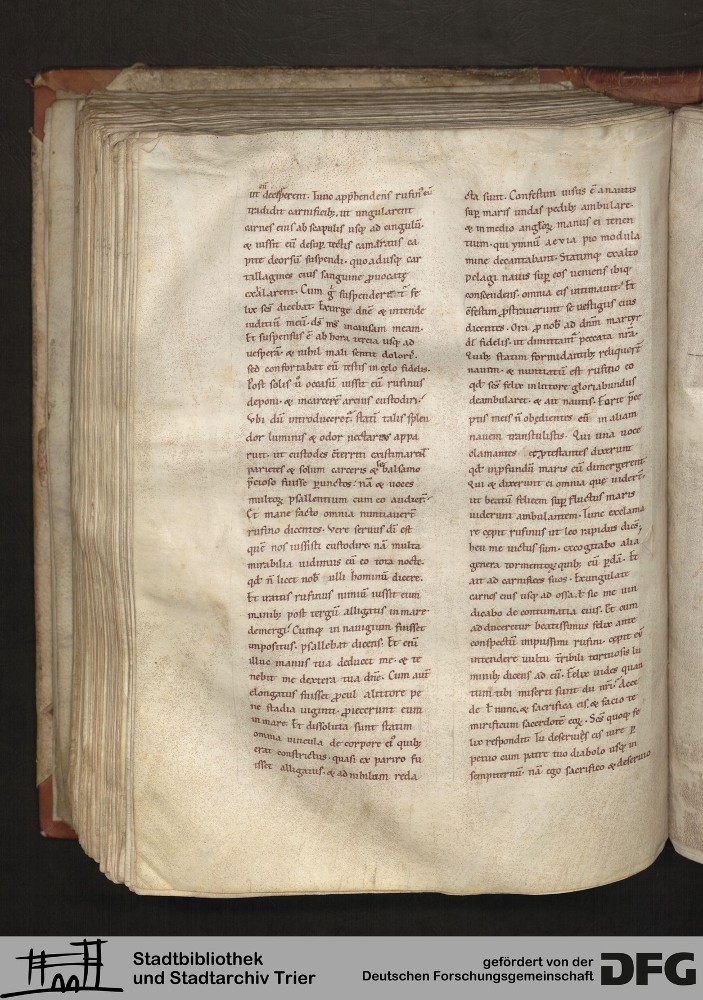 ut deesperent. Tunc app̄hendens rufin᷒ eū
tradidit carnificib;, ut ungularent
carnes eius ab scapulis usq; ad cingulū.
& iussit eū desup tectis camaratis ca
pite deorsū suspendi. quo adusq; car
tallagines eius sanguine ꝓuocatę
exalarent. Cum ḡ suspenderet᷒ se
lix scs̄ dicebat. Exurge dn̄e & intende
iuditiū meū. ds̄ ms̄ in causam meam.
Et suspensus ē ab hora tercia usq; ad
uesperā. & nihil mali sentit dolorē.
sed confortabat eū testis in cęlo fidelis.
Post solis ū occasū iussit eū rufinus
deponi. & in carcerē artius custodiri.
Vbi dū introduceret᷒. statī talis splen
dor luminis & odor nectareus appa
ruit. ut custodes cterriti existimarent
parietes & solum carceris & balsamo
p̄cioso fuisse ꝑunctos. nā & uoces
multoꝝ psallentium cum eo audier̄.
Et mane facto omnia nuntiauer̄t
rufino dicentes. Vere seruus dī est
quē nos iussisti custodire. nā multa
mirabilia uidimus cū eo tota nocte.
qd̄ n̄ licet nob̄ ulli hominū dicere.
Et iratus rufinus nimiū iussit eum
manib; post tergū alligatis in mare
demergi. Cumq; in nauigium fuisset
impositus. psallebat dicens. Et enī
illuc manus tua deducet me. & te
nebit me dextera tua dn̄e. Cum aut̄
elongatus fuisset ꝓcul a littore pe
ne stadia uiginti. ꝓiecerunt eum
in mare. Et dissoluta sunt statim
omnia uincula de corpore ei᷒ quib;
erat constrictus. quasi ex papiro fu
isset alligatus. & ad nihilum reda
cta sunt. Confestim uisus ē a nautis
sup maris undas pedib; ambulare.
& in medio angloꝝ manus ei᷒ tenen
tium. qui ymnū aeuia pio modula
mine decantabant. Statimq; ex alto
pelagi nauis sup eos ueniens ibiq;
conscendens. omnia eis intimauit. Et
cfestim ꝓstrauerunt se uestigiis eius
dicentes. Ora ꝓ nob̄ ad dnm̄ martyr
dī fidelis. ut dimittant᷒ peccata nr̄a.
Quib; statim formidantib; reliquer̄t
nauim. & nuntiatū est rufino eo
qd̄ scs̄ felix in littore gloriabundus
deambularet. & ait nautis. Forte p̄ce
ptis meis n̄ obędientes eū in aliam
nauem transtulistis. Qui una uoce
clamantes & ꝓtestantes dixerunt
qd̄ in ꝓfundū maris eū dimergerent.
Qui & dixerunt ei omnia quę uider̄t.
ut beatū felicem sup fluctus maris
uiderunt ambulantem. Tunc exclama
re cępit rufinus ut leo rapidus dicēs.
heu me uictus sum. excogitabo alia
genera tormentoꝝ quib; eū ꝑdā. Et
ait ad carnifices suos. Exungulate
carnes eius usq; ad ossa. & sic me uin
dicabo de contumatia eius. Et cum
adduceretur beatissimus felix ante
conspectū impiissimi rufini. cępit eū
intendere uultu t̄ribili. tortuosis lu
minib; dicens ad eū. Felix uides quan
tum tibi miserti sunt dii nr̄i. Acce
de l nunc. & sacrifica eis. & facio te
mirificum sacerdotē eoꝝ. Scs̄ quoq; fe
lix respondit. Tu deseruies eis iure ꝑ
petuo cum patre tuo diabolo usq; in
sempiternū. nā ego sacrifico & deseruio
Stadtbibliothek
und Stadtarchiv Trier
gefördert von der
Deutschen Forschungsgemeinschaft
DFG